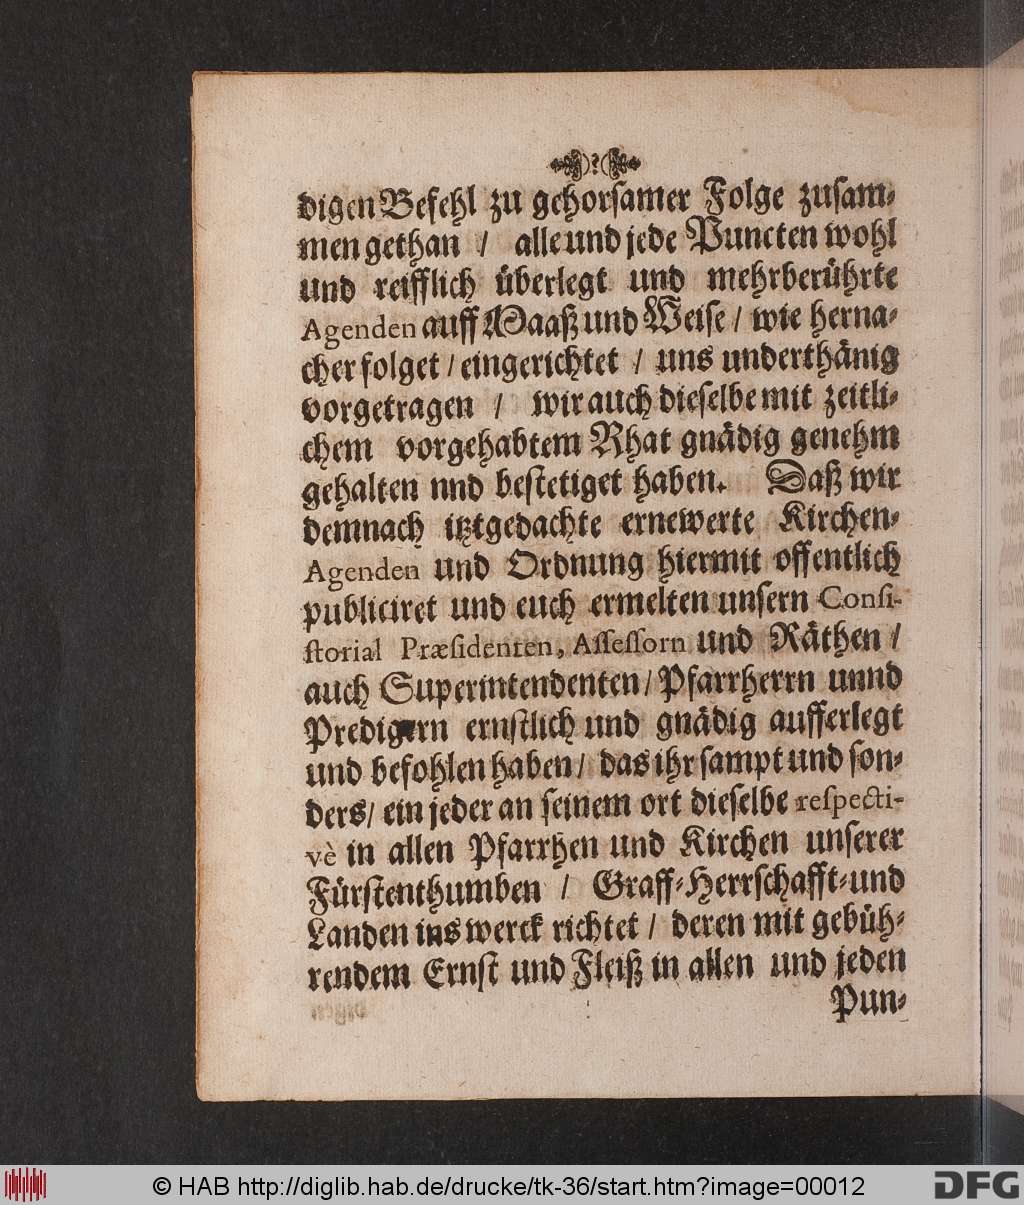 digen Befehl zu gehorsamer Folge zusam-
men gethan / alle und jede Puncten wohl
und reifflich überlegt und mehrberührte
Agenden auff Maaß und Weise / wie herna-
cher folget / eingerichtet / uns underthänig
vorgetragen / wir auch dieselbe mit zeitli-
chem vorgehabtem Rhat gnädig genehm
gehalten nnd bestetiget haben. Daß wir
demnach itztgedachte ernewerte Kirchen-
Agenden und Ordnung hiermit offentlich
publiciret und euch ermelten unsern Consi-
storial Præsidenten, Assessorn und Räthen /
auch Superintendenten / Pfarrherrn unnd
Predigern ernstlich und gnädig aufferlegt
und befohlen haben / das ihr sampt und son-
ders / ein jeder an seinem ort dieselbe respecti-
vè in allen Pfarrhen und Kirchen unserer
Fürstenthumben / Graff-Herrschafft-und
Landen ins werck richtet / deren mit gebüh-
rendem Ernst und Fleiß in allen und jeden
Pun-
© HAB http://diglib.hab.de/drucke/tk-36/start.htm?image=00012
DFG